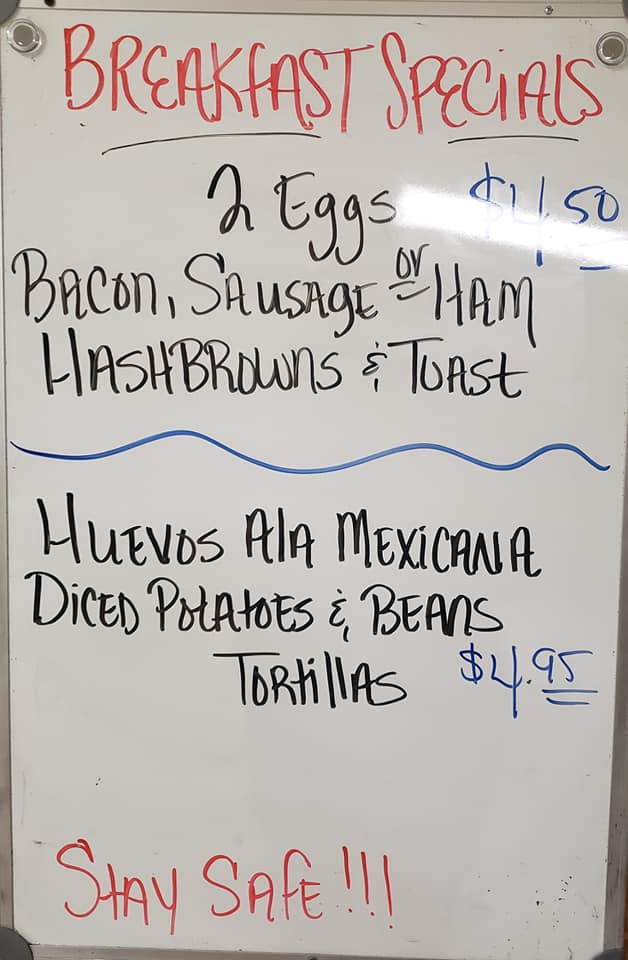 BREAKFAST SPECIALS
2 Eggs $4.50
BACON, SAUSAGE or HAM
HASHBROWNS & TOAST
HUEVOS Ala MEXICANA
DICED POTATOES & BEANS
TORTILLAS $4.95
STAY SAFE!!!